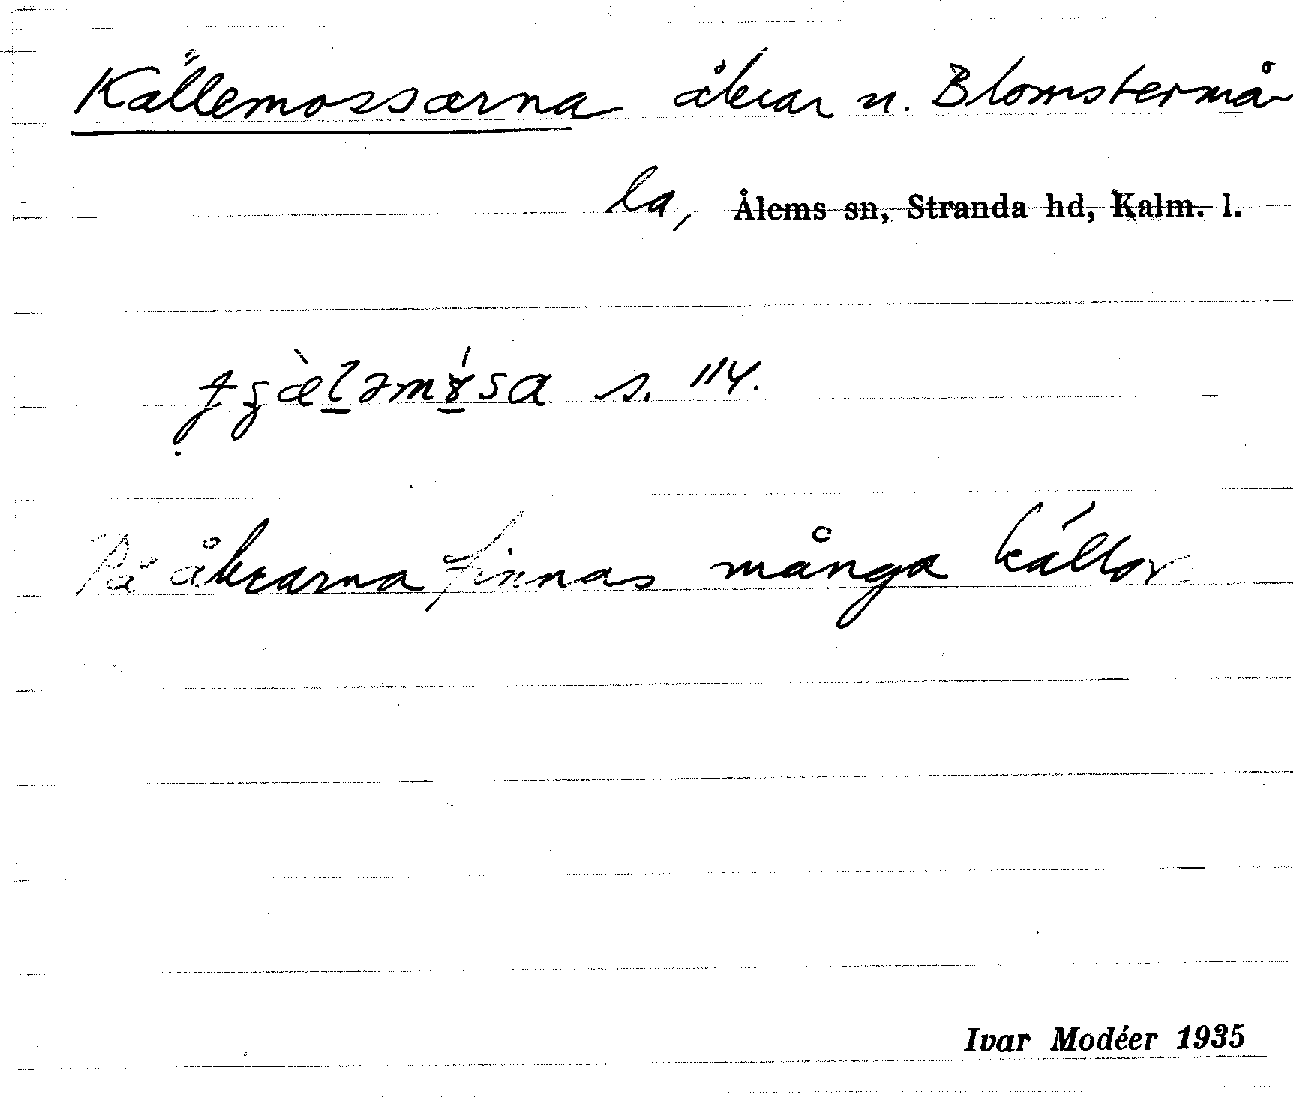 Källemossarna åkrar n. Blomstermå-
la, Ålems sn, Stranda hd, Kalm. l.
s. 114.
På åkrarna finnas många källor
Ivar Modéer 1935